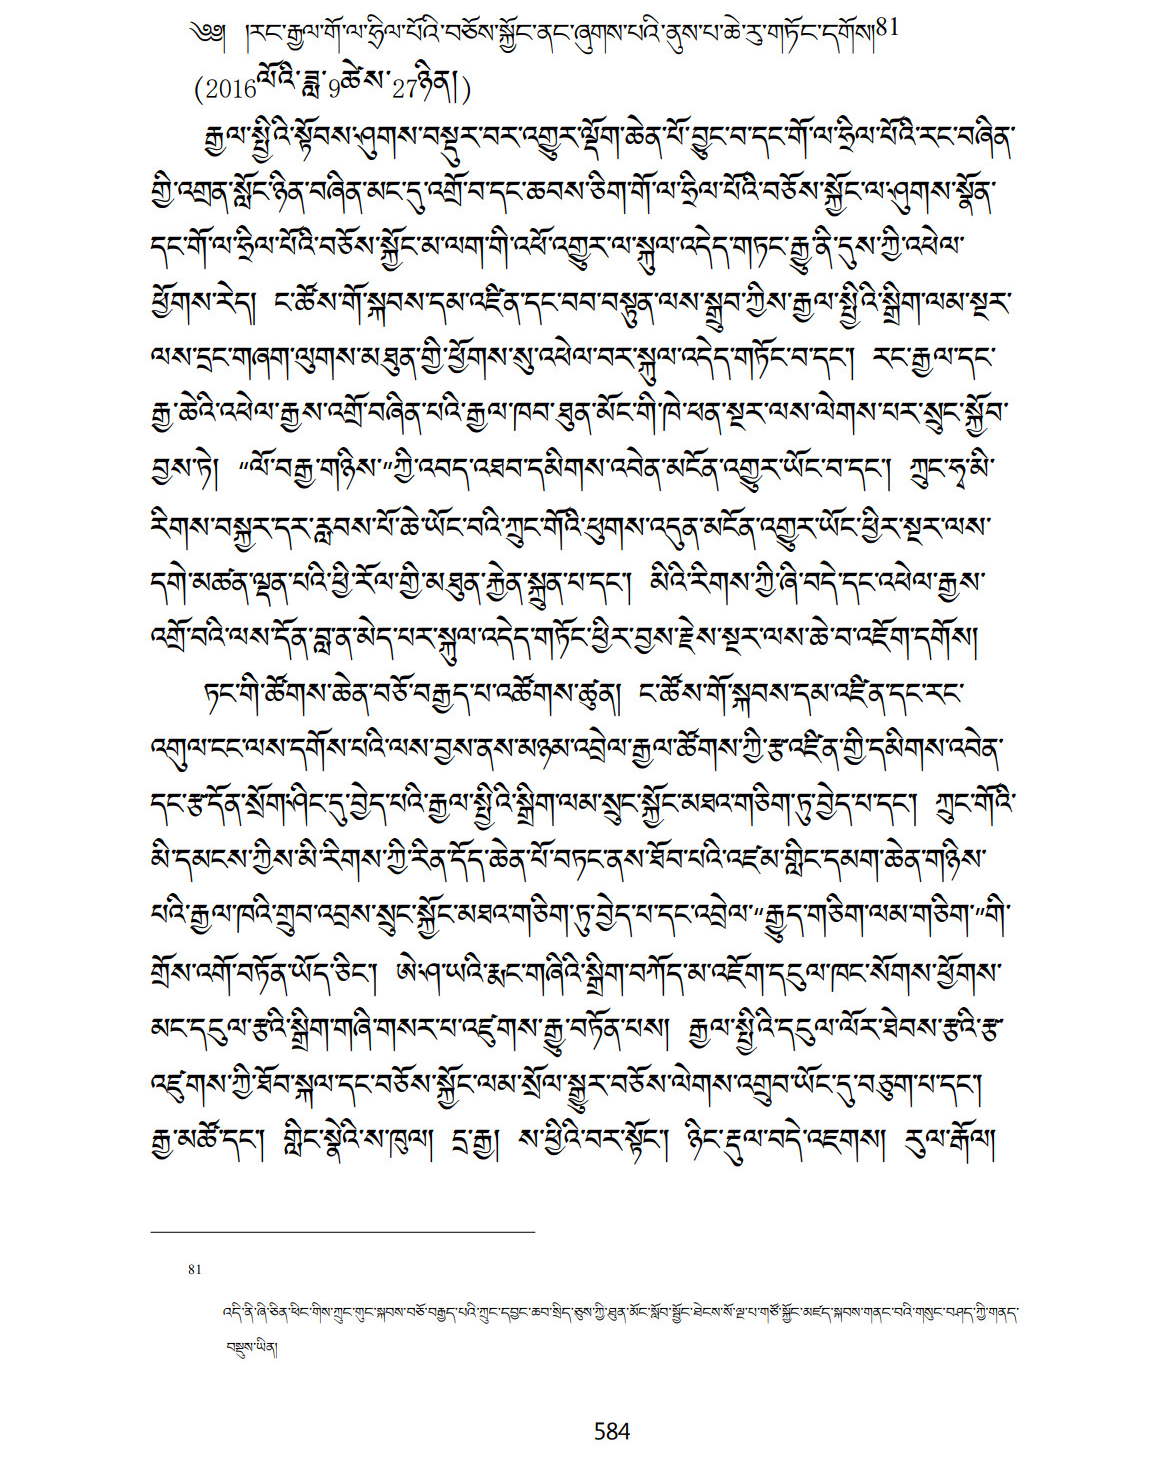 ༄༅། །རང་རྒྱལ་གོ་ལ་ཧྲིལ་པོའི་བཅོས་སྐྱོང་ནང་ཞུགས་པའི་ནུས་པ་ཆེ་རུ་གཏོང་དགོས།81
(2016ལོའི་ཟླ་9ཚེས་27ཉིན།)
རྒྱལ་སྤྱིའི་སྟོབས་ཤུགས་བསྡུར་བར་འགྱུར་ལྡོག་ཆེན་པོ་བྱུང་བ་དང་གོ་ལ་ཧྲིལ་པོའི་རང་བཞིན་
གྱི་འགྲན་སློང་ཉིན་བཞིན་མང་དུ་འགྲོ་བ་དང་ཆབས་ཅིག་གོ་ལ་ཧྲིལ་པོའི་བཅོས་སྐྱོང་ལ་ཤུགས་སྣོན་
དང་གོ་ལ་ཧྲིལ་པོའི་བཅོས་སྐྱོང་མ་ལག་གི་འཕོ་འགྱུར་ལ་སྐུལ་འདེད་གཏང་རྒྱུ་ནི་དུས་ཀྱི་འཕེལ་
ཕྱོགས་རེད། ང་ཚོས་གོ་སྐབས་དམ་འཛིན་དང་བབ་བསྟུན་ལས་སྒྲུབ་ཀྱིས་རྒྱལ་སྤྱིའི་སྒྲིག་ལམ་སྔར་
ལས་དྲང་གཞག་ལུགས་མཐུན་གྱི་ཕྱོགས་སུ་འཕེལ་བར་སྐུལ་འདེད་གཏོང་བ་དང་། རང་རྒྱལ་དང་
རྒྱ་ཆེའི་འཕེལ་རྒྱས་འགྲོ་བཞིན་པའི་རྒྱལ་ཁབ་ཐུན་མོང་གི་ཁེ་ཕན་སྔར་ལས་ལེགས་པར་སྲུང་སྐྱོབ་
བྱས་ཏེ། “ལོ་བརྒྱ་གཉིས་”ཀྱི་འབད་འཐབ་དམིགས་འབེན་མངོན་འགྱུར་ཡོང་བ་དང་། ཀྲུང་ཧྭ་མི་
རིགས་བསྐྱར་དར་རླབས་པོ་ཆེ་ཡོང་བའི་ཀྲུང་གོའི་ཕུགས་འདུན་མངོན་འགྱུར་ཡོང་ཕྱིར་སྔར་ལས་
དགེ་མཚན་ལྡན་པའི་ཕྱི་རོལ་གྱི་མཐུན་རྐྱེན་སྐྲུན་པ་དང་། མིའི་རིགས་ཀྱི་ཞི་བདེ་དང་འཕེལ་རྒྱས་
འགྲོ་བའི་ལས་དོན་བླ་ན་མེད་པར་སྐུལ་འདེད་གཏོང་ཕྱིར་བྱས་རྗེས་སྔར་ལས་ཆེ་བ་འཇོག་དགོས།
ཏང་གི་ཚོགས་ཆེན་བཅོ་བརྒྱད་པ་འཚོགས་ཚུན། ང་ཚོས་གོ་སྐབས་དམ་འཛིན་དང་རང་
འགུལ་ངང་ལས་དགོས་པའི་ལས་བྱས་ནས་མཉམ་འབྲེལ་རྒྱལ་ཚོགས་ཀྱི་རྩ་འཛིན་གྱི་དམིགས་འབེན་
དང་རྩ་དོན་སྲོག་ཤིང་དུ་བྱེད་པའི་རྒྱལ་སྤྱིའི་སྒྲིག་ལམ་སྲུང་སྐྱོང་མཐའ་གཅིག་ཏུ་བྱེད་པ་དང་། ཀྲུང་གོའི་
མི་དམངས་ཀྱིས་མི་རིགས་ཀྱི་རིན་དོད་ཆེན་པོ་བཏང་ནས་ཐོབ་པའི་འཛམ་གླིང་དམག་ཆེན་གཉིས་
པའི་རྒྱལ་ཁའི་གྲུབ་འབྲས་སྲུང་སྐྱོང་མཐའ་གཅིག་ཏུ་བྱེད་པ་དང་འབྲེལ་“རྒྱུད་གཅིག་ལམ་གཅིག་”གི་
གྲོས་འགོ་བཏོན་ཡོད་ཅིང་། ཨེ་ཤ་ཡའི་རྨང་གཞིའི་སྒྲིག་བཀོད་མ་འཇོག་དངུལ་ཁང་སོགས་ཕྱོགས་
མང་དངུལ་རྩའི་སྒྲིག་གཞི་གསར་པ་འཛུགས་རྒྱུ་བཏོན་པས། རྒྱལ་སྤྱིའི་དངུལ་ལོར་ཐེབས་རྩའི་རྩ་
འཛུགས་ཀྱི་ཐོབ་སྐལ་དང་བཅོས་སྐྱོང་ལམ་སྲོལ་སྒྱུར་བཅོས་ལེགས་འགྲུབ་ཡོང་དུ་བཅུག་པ་དང་།
རྒྱ་མཚོ་དང་། གླིང་སྣེའི་ས་ཁུལ། དྲ་རྒྱ། ས་ཕྱིའི་བར་སྟོང་། ཉིང་རྡུལ་བདེ་འཇགས། རུལ་རྒོལ།
81
འདི་ནི་ཞི་ཅིན་ཕིང་གིས་ཀྲུང་གུང་སྐབས་བཅོ་བརྒྱད་པའི་ཀྲུང་དབྱང་ཆབ་སྲིད་ཅུས་ཀྱི་ཐུན་མོང་སློབ་སྦྱོང་ཐེངས་སོ་ལྔ་པ་གཙོ་སྐྱོང་མཛད་སྐབས་གནང་བའི་གསུང་བཤད་ཀྱི་གནད་
བསྡུས་ཡིན།
584